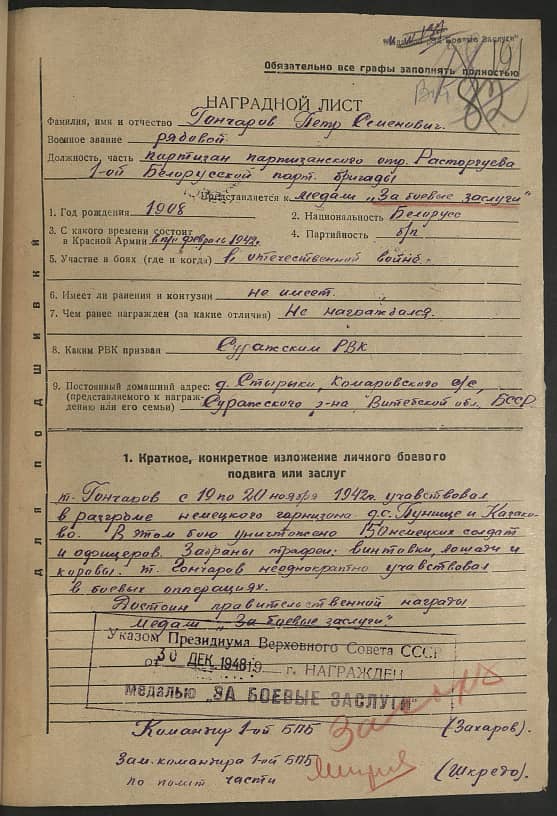 "Медаль за Боевые Заслуги"
191
82
Обязательно все графы заполнять полностью
НАГРАДНОЙ ЛИСТ
Фамилия, имя и отчество Гончаров Петр Семенович.
Военное звание рядовой.
Должность, часть партизан партизанского отр. Расторгуева
1-ой Белорусской парт. бригады
Представляется к медали „За боевые заслуги"
1. Год рождения 1908 2. Национальность Белорусс
3. С какого времени состоит
в Красной Армии в п/о февраль 1942г. 4. Партийность б/п
5. Участие в боях (где и когда) в отечественной войне.
6. Имеет ли ранения и контузии не имеет.
7. Чем ранее награжден (за какие отличия) Не награждался.
8. Каким РВК призван Суражским РВК
9. Постоянный домашний адрес: д. Стырики, Комаровского с/с,
(представляемого к награж-
дению или его семьи) Суражского р-на Витебской обл. БССР
ДЛЯ ПОДШИВКИ
1. Краткое, конкретное изложение личного боевого
подвига или заслуг
т. Гончаров с 19 по 20 ноября 1942г. учавствовал
в разгроме немецкого гарнизона д.с. Пунище и Казако-
во. В этом бою уничтожено 150 немецких солдат
и офицеров. Забраны трофеи: винтовки, лошади и
коравы. т. Гончаров неоднократно учавствовал
в боевых опперациях.
Достоин правительственной награды
медали „За боевые заслуги"
Указом Президиума Верховного Совета СССР
от 30 ДЕК 1948 19 г. НАГРАЖДЕН
медалью „ЗА БОЕВЫЕ ЗАСЛУГИ"
Командир 1-ой БПБ (Захаров).
Зам. командира 1-ой БПБ
по полит части (Шкредо).